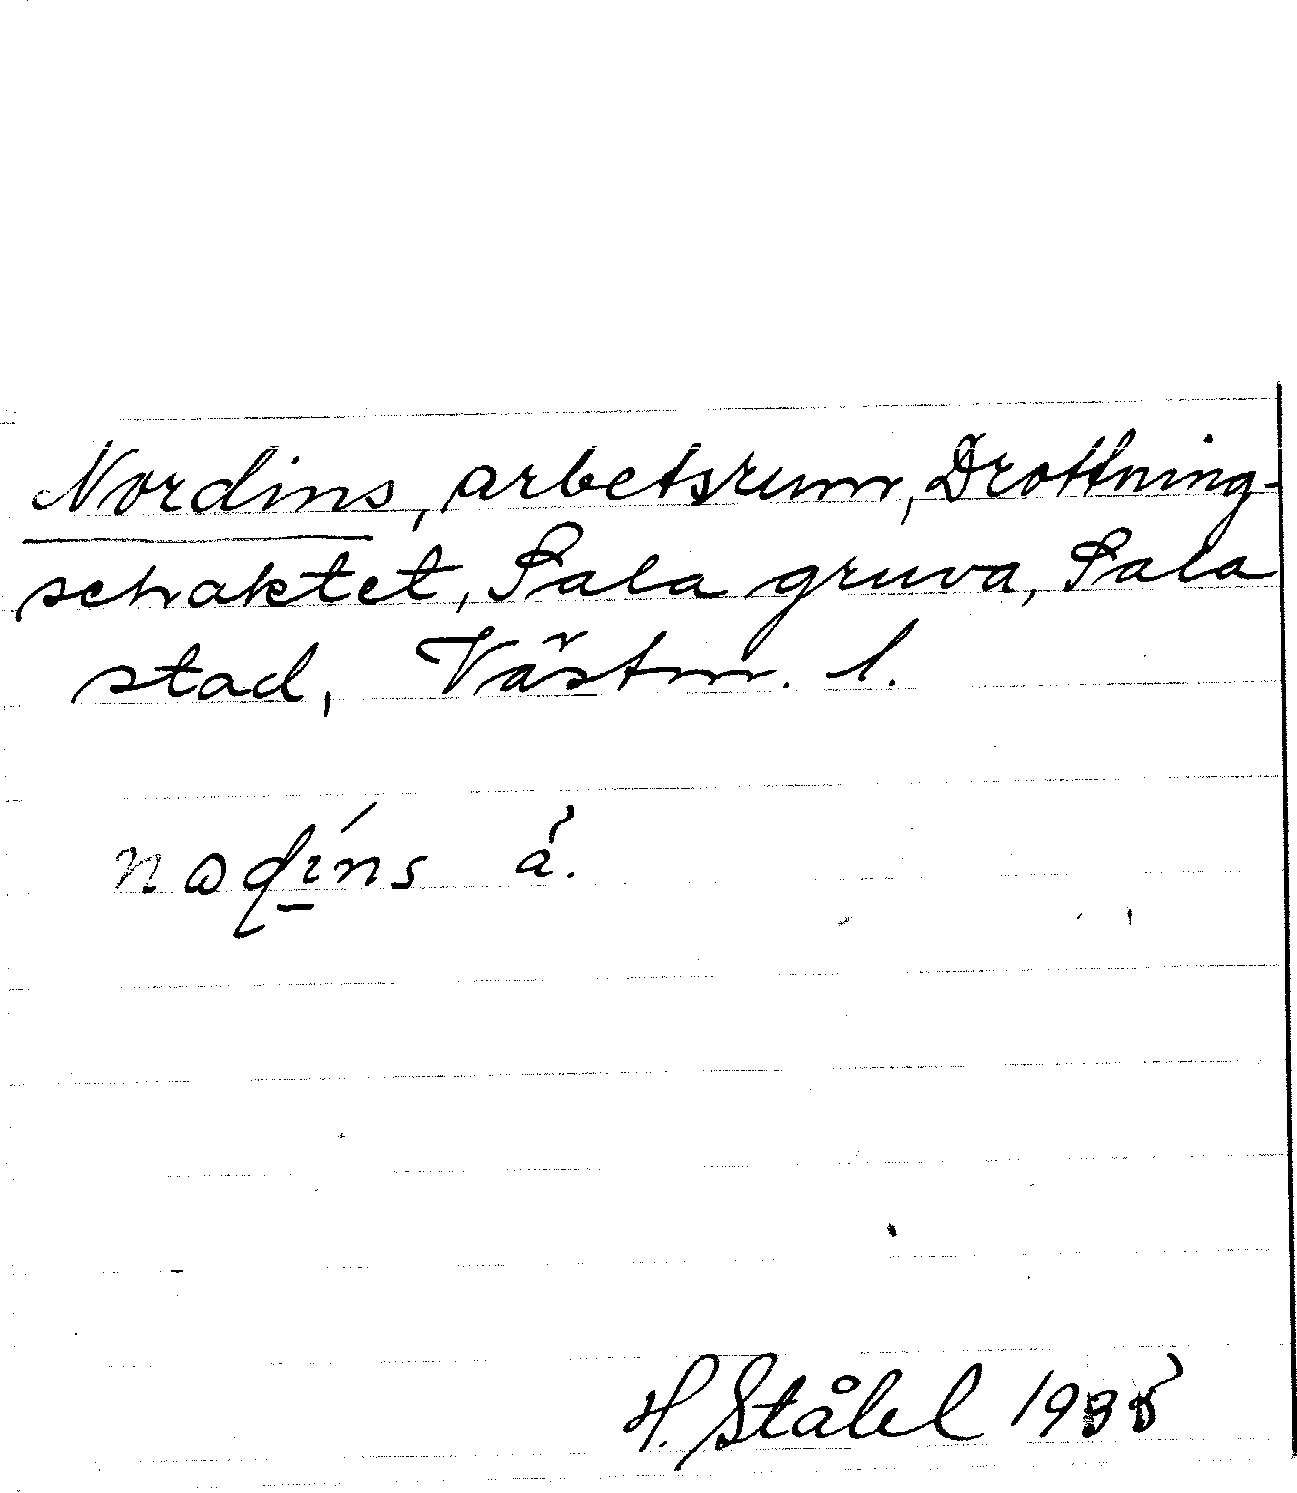 Nordins, arbetsrum, Drottning-
schaktet, Sala gruva, Sala
stad, Västm. l.
H. Ståhl 1935